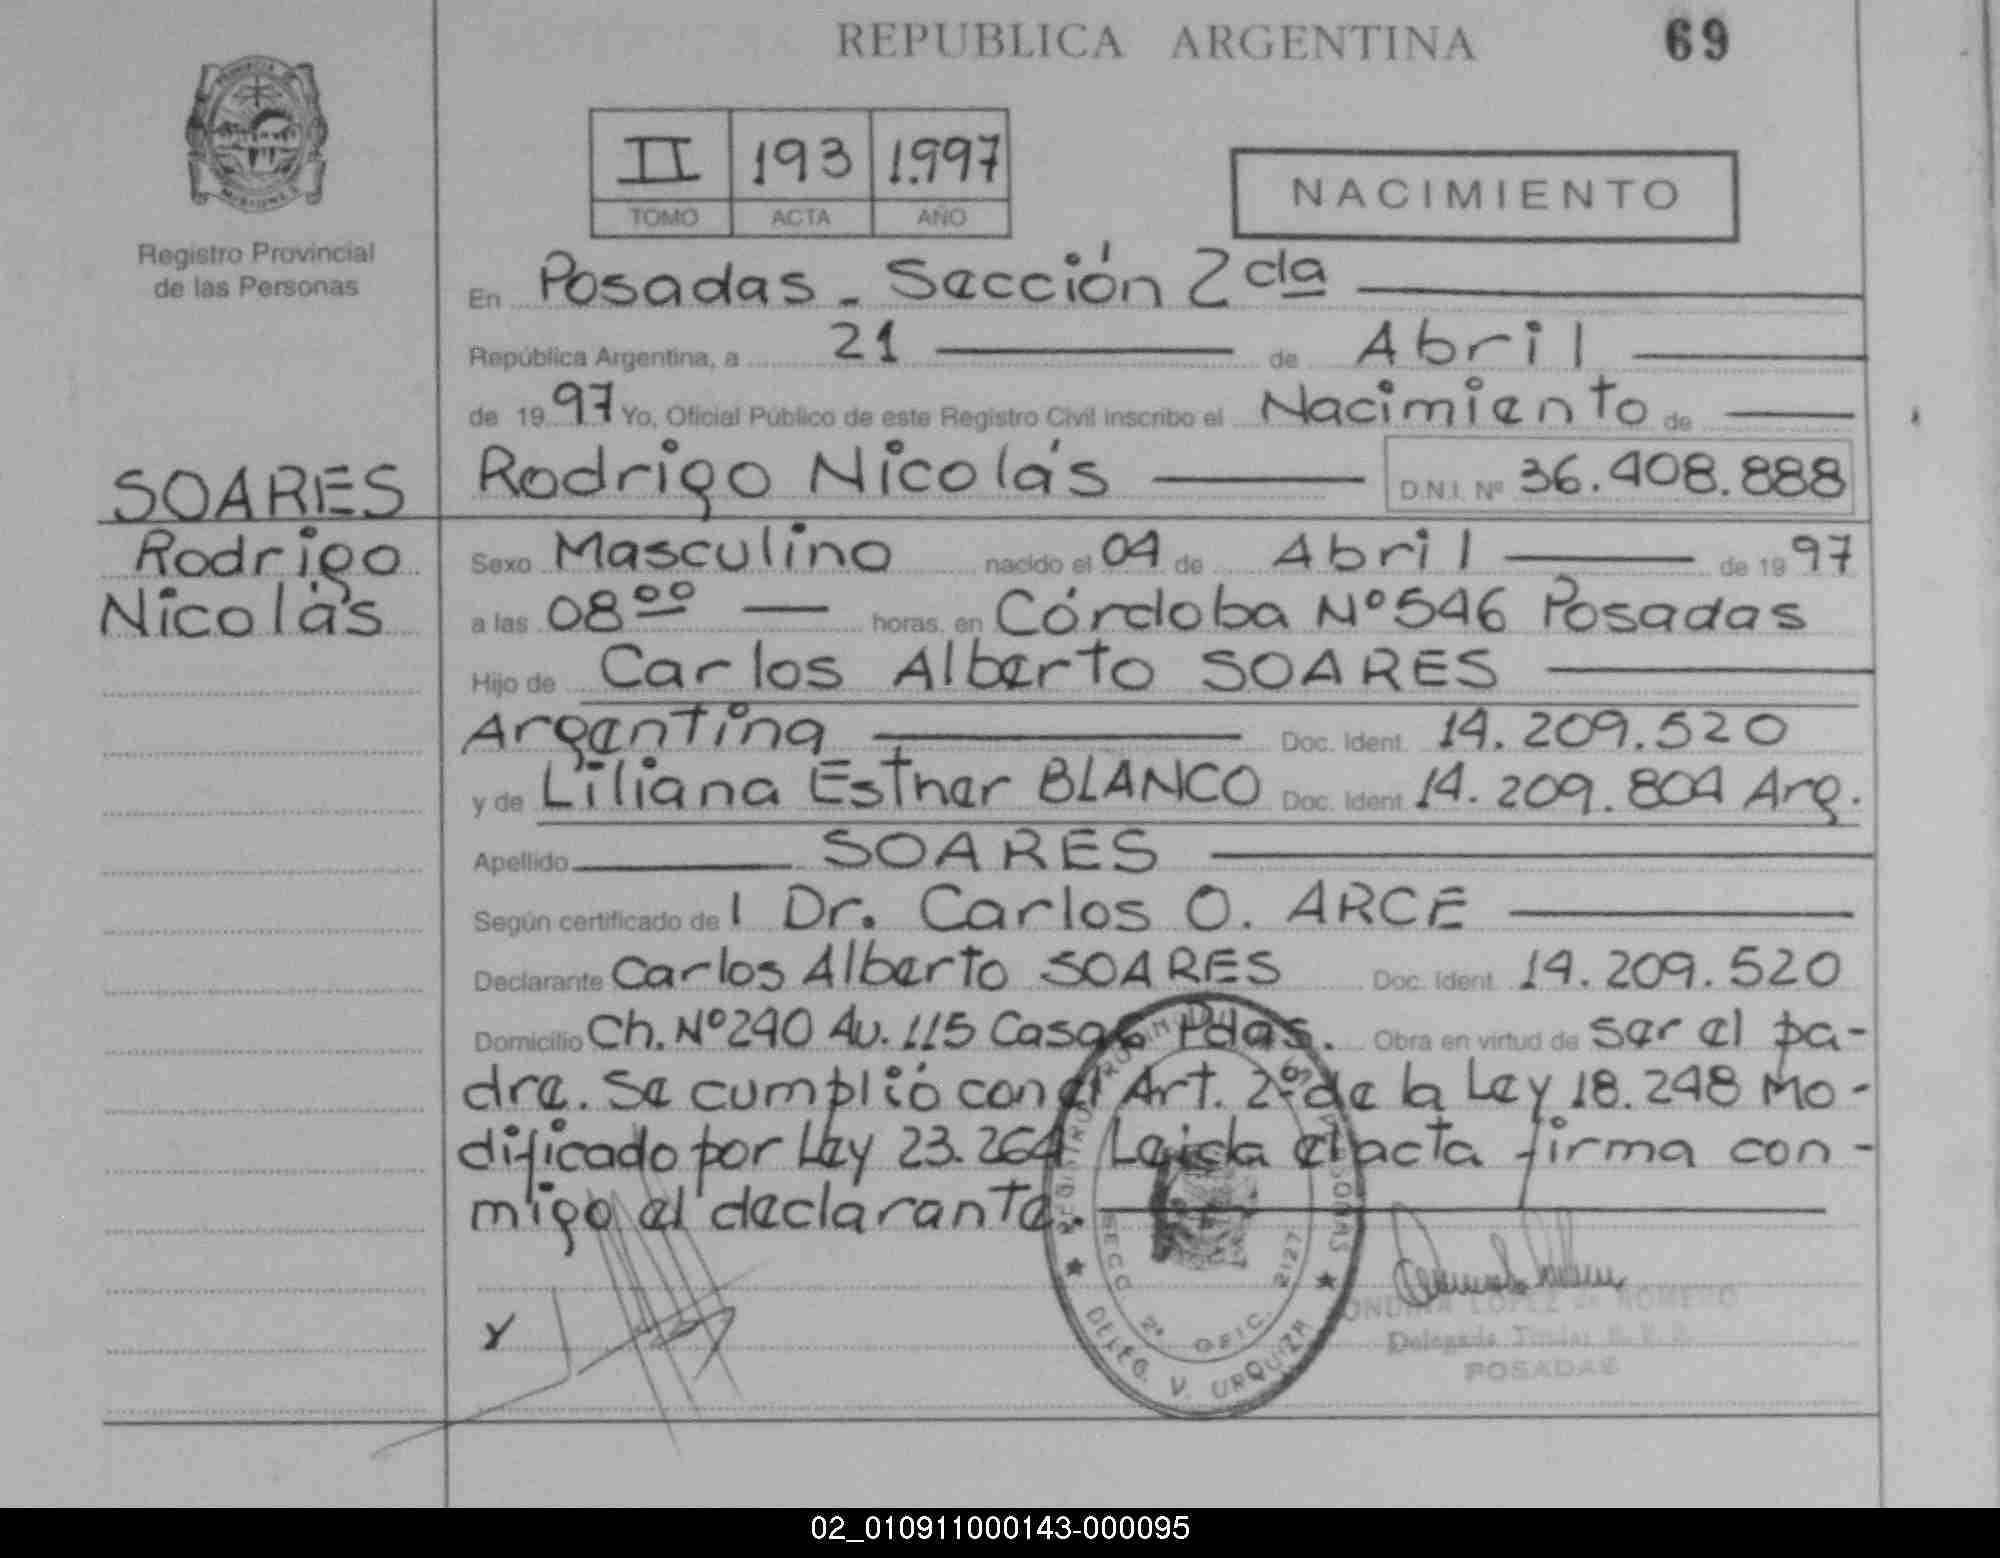 REPUBLICA ARGENTINA 69
PROVINCIA DE MISIONES
Registro Provincial
de las Personas
II 193 1.997
TOMO ACTA AÑO
NACIMIENTO
En Posadas - Sección 2cda
República Argentina, a 21 de Abril
de 1997 Yo, Oficial Público de este Registro Civil inscribo el Nacimiento de
SOARES Rodrigo Nicolás D.N.I. Nº 36.408.888
Rodrigo Sexo Masculino nacido el 04 de Abril de 1997
Nicolás a las 08⁰⁰ horas, en Córdoba Nº 546 Posadas
Hijo de Carlos Alberto SOARES
Argentina Doc. Ident. 14.209.520
y de Liliana Esther BLANCO Doc. Ident. 14.209.804 Arg.
Apellido SOARES
Según certificado de l Dr. Carlos O. ARCE
Declarante Carlos Alberto SOARES Doc. Ident. 14.209.520
Domicilio Ch. Nº 240 Av. 115 Casa 6 Pdas. Obra en virtud de ser el pa-
dre. Se cumplió con el Art. 2º de la Ley 18.248 Mo-
dificado por Ley 23.264 Leida el acta firma con-
migo el declarante.
REGISTRO PROVINCIAL DE LAS PERSONAS
SECC 2ª OFIC. 2127
DELEG. V. URQUIZA
LOPEZ de ROMERO
Delegada Titular R. P. P.
POSADAS
02_010911000143-000095